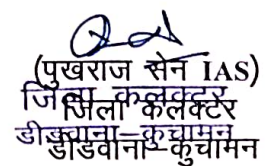 (पुखराज सेन IAS)
जिला कलक्टर
जिला कलेक्टर
डीडवाना-कुचामन
डीडवाना-कुचामन